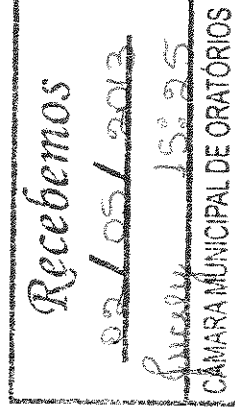 Recebemos
02/05/2013
15:25
CÂMARA MUNICIPAL DE ORATÓRIOS